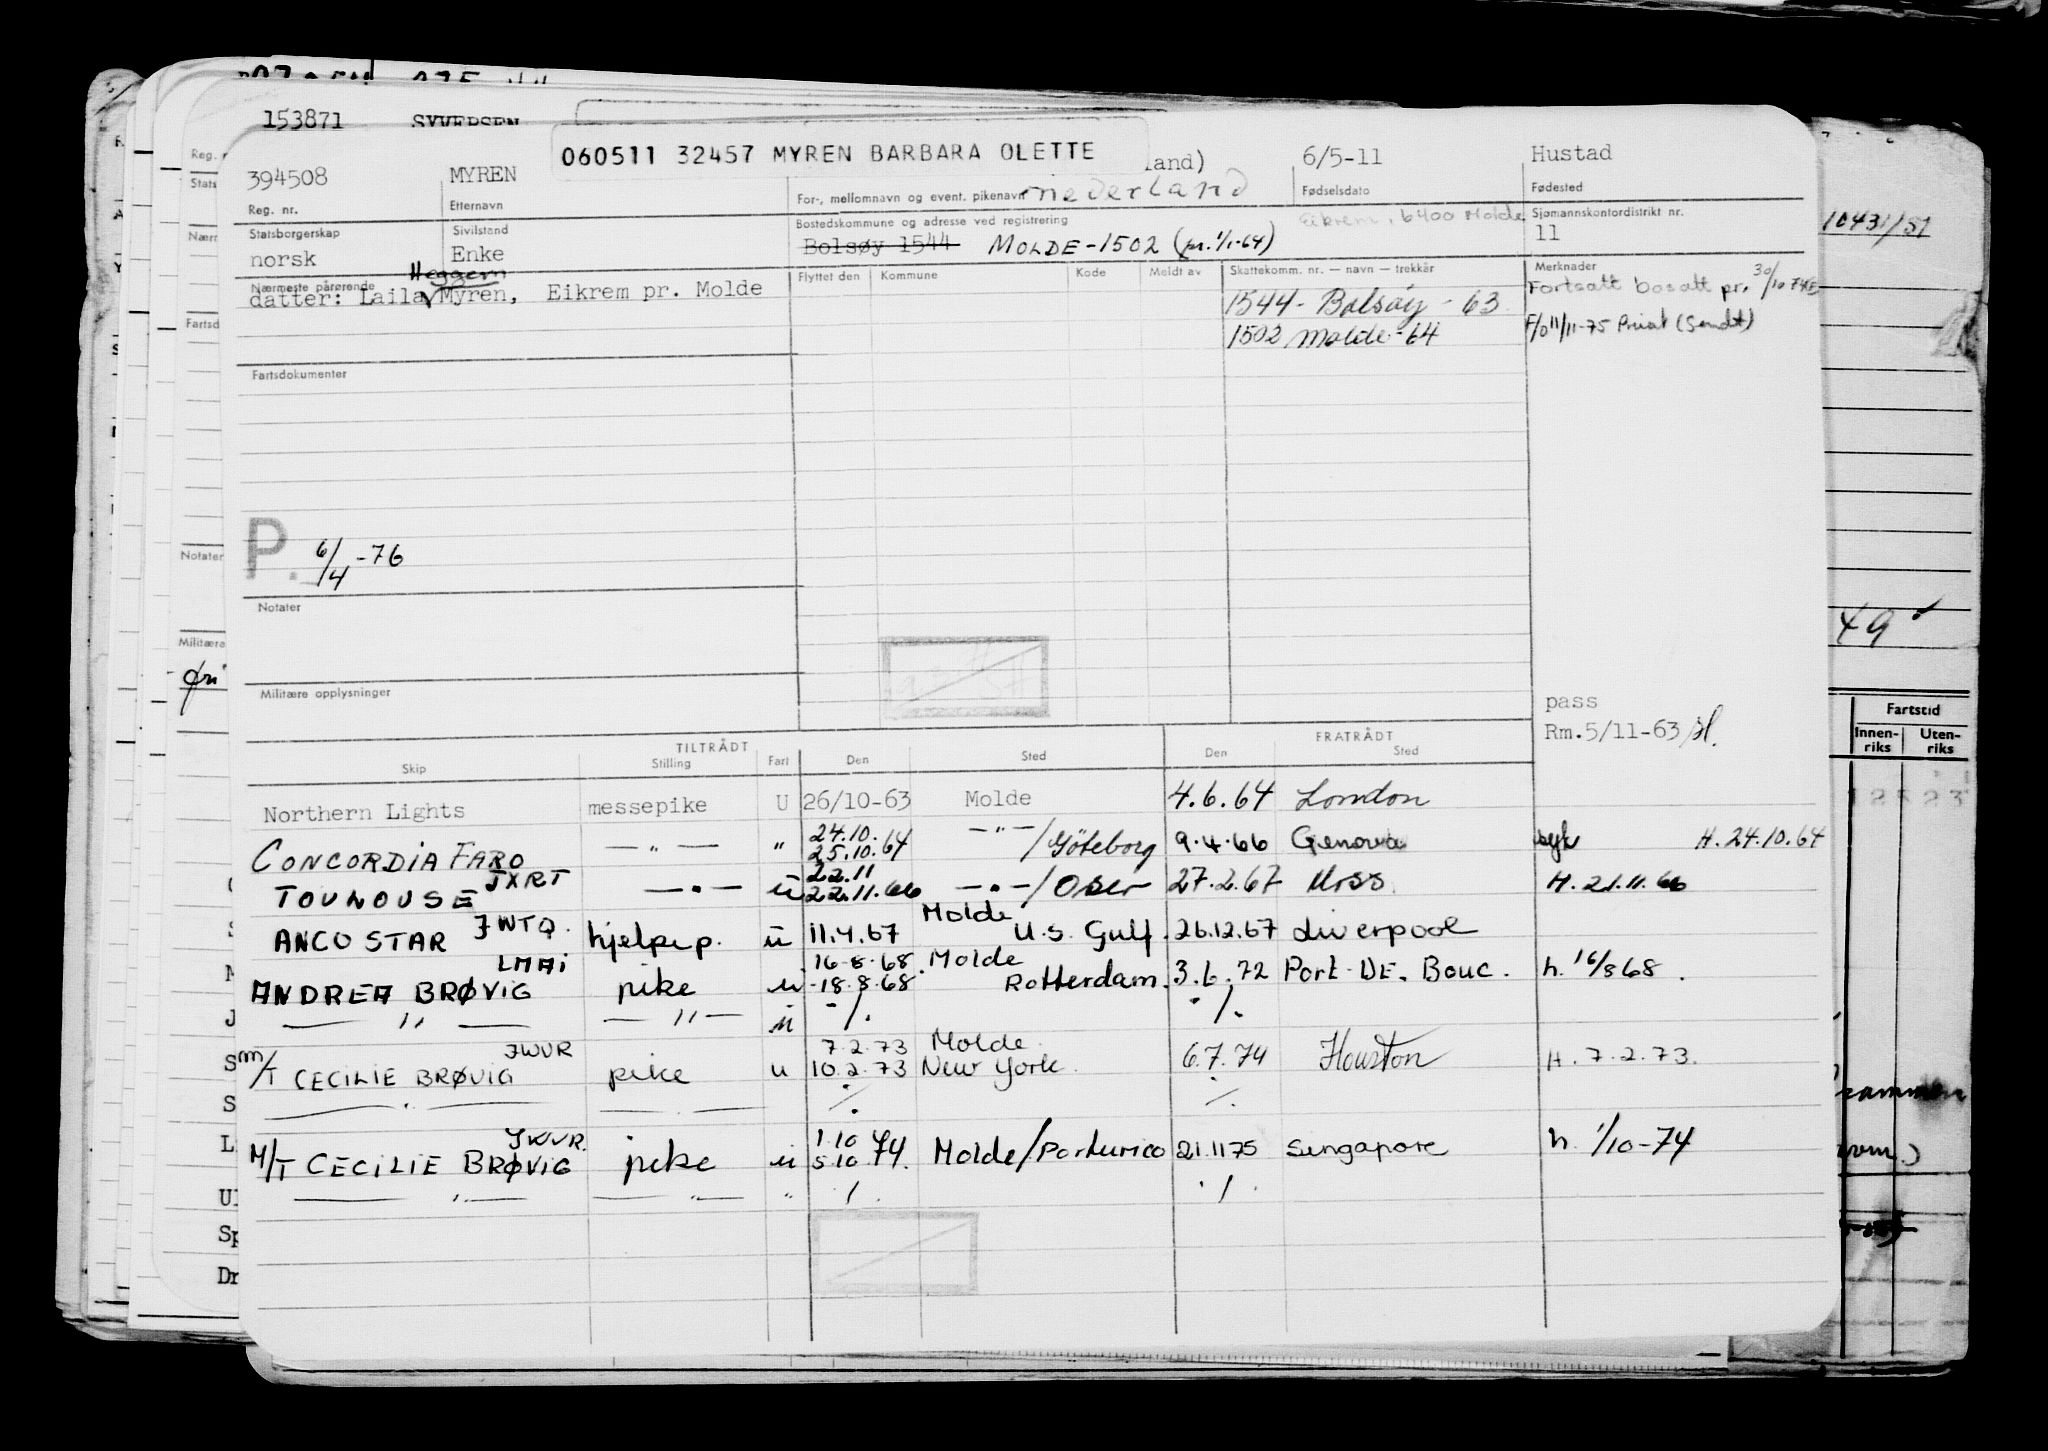 153871 SYVERSEN
060511 32457 MYREN BARBARA OLETTE
394508 MYREN land) 6/5-11 Hustad
Reg. nr. Etternavn For-, mellomnavn og event. pikenavn nederland Fødselsdato Fødested
Statsborgerskap Sivilstand Bostedskommune og adresse ved registrering Eikrem, 6400 Molde Sjømannskontordistrikt nr.
norsk Enke Bolsøy 1544 MOLDE-1502 (pr. 1/1-64) 11
Heggem
Nærmeste pårørende Flyttet den Kommune Kode Meldt av Skattekomm. nr. — navn — trekkår Merknader
datter: Laila Myren, Eikrem pr. Molde 1544 - Bolsøy - 63 Fortsatt bosatt pr. 30/10 74
1502 Molde - 64 F/o 11/11-75 Privat (Sendt)
Fartsdokumenter
P. 6/4-76
Notater
Militære opplysninger
pass
Rm. 5/11-63
TILTRÅDT FRATRÅDT
Skip Stilling Fart Den Sted Den Sted
Northern Lights messepike U 26/10-63 Molde 4.6.64 London
CONCORDIA FARO — " — " 24.10. 25.10.64 — " — / Göteborg 9.4.66 Genova syk H. 24.10.64
TOULOUSE JXRT — " — u 22.11 22.11.66 — " — / 27.2.67 Moss. H. 21.11.66
ANCO STAR JWTQ. hjelpep. u 11.4.67 Molde U.S. Gulf. 26.12.67 Liverpool
ANDREA BRØVIG LMAI pike u 16.8.68 18.8.68 Molde Rotterdam. 3.6.72 Port-DE. Bouc. h. 16/8 68.
— " — — " — u ./. ./.
M/T CECILIE BRØVIG JWVR pike u 7.2.73 10.2.73 Molde New York. 6.7.74 Houston H. 7.2.73.
— " — — " — ./. ./.
M/T CECILIE BRØVIG JWVR. pike u 1.10 5.10 74. Molde/Porturico 21.11 75 Singapore h. 1/10-74
— " — — " — " ./. ./.
10431/51
49
Fartstid
Innen-riks Uten-riks